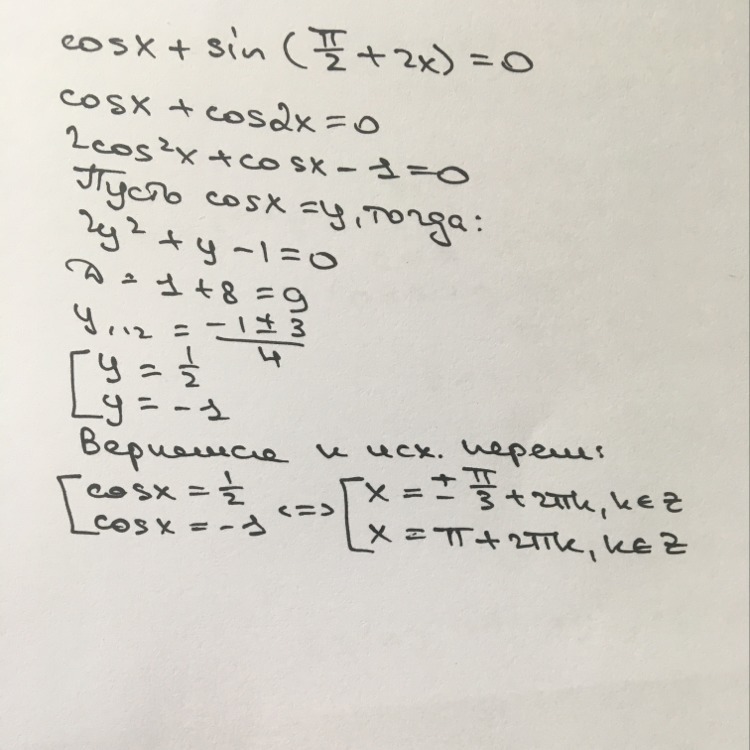 cosx + sin (π/2 + 2x) = 0
cosx + cos2x = 0
2cos²x + cosx - 1 = 0
Пусть cosx = y, тогда:
2y² + y - 1 = 0
D = 1 + 8 = 9
y₁,₂ = (-1 ± 3)/4
[ y = 1/2
[ y = -1
Вернемся к исх. перем:
[ cosx = 1/2 <=> [ x = ± π/3 + 2πk, k ∈ Z
[ cosx = -1 [ x = π + 2πk, k ∈ Z